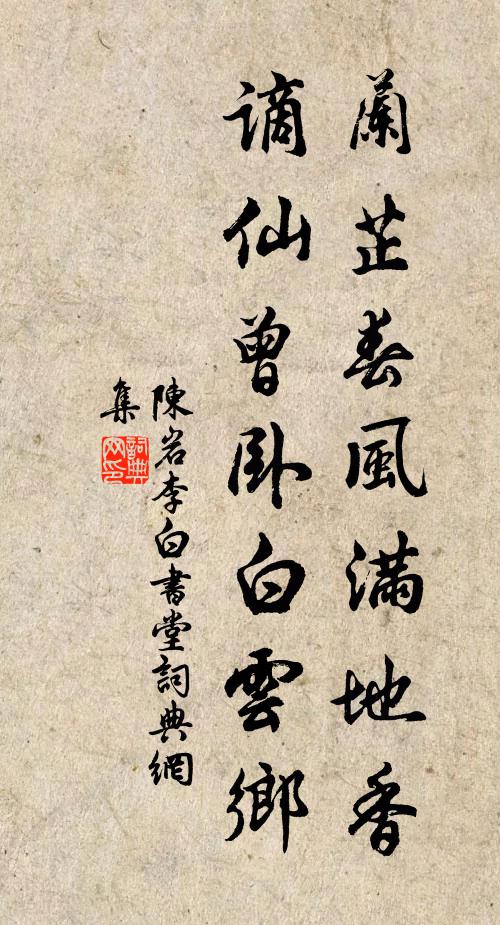 蘭芷春風滿地香
謫仙曾臥白雲鄉
陳岩李白書堂詞典網
集
詞典网印